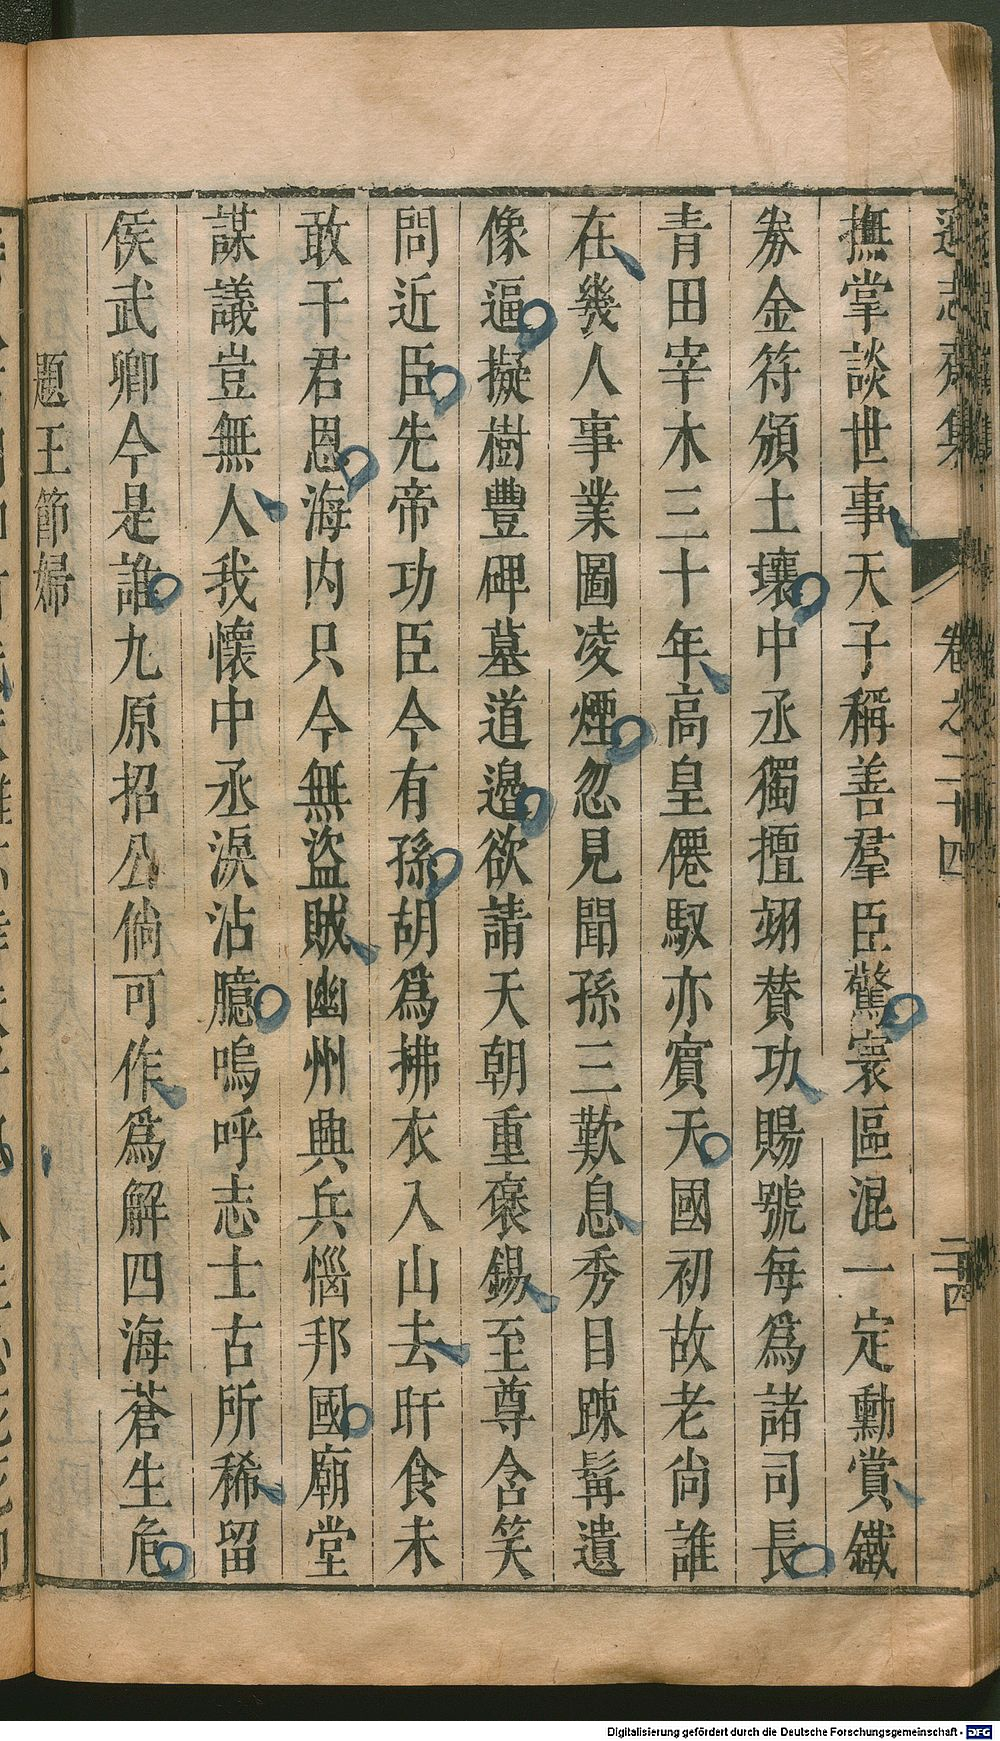 遜志齋集 卷之二十四 二十四
撫掌談世事天子稱善羣臣驚寰區混一定勳賞鐵
券金符頒土壤中丞獨擅翊賛功賜號每爲諸司長
青田宰木三十年高皇僊馭亦賓天國初故老尚誰
在幾人事業圖凌煙忽見聞孫三歎息秀目踈髯遺
像逼擬樹豐碑墓道邊欲請天朝重褒錫至尊含笑
問近臣先帝功臣今有孫胡爲拂衣入山去旰食未
敢干君恩海内只今無盜賊幽州興兵惱邦國廟堂
謀議豈無人我懷中丞淚沾臆嗚呼志士古所稀留
侯武卿今是誰九原招公倘可作爲解四海蒼生危
題王節婦
Digitalisierung gefördert durch die Deutsche Forschungsgemeinschaft - DFG